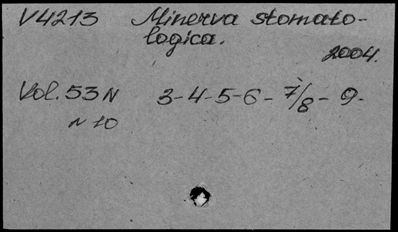 V4213 Minerva stomato-
logica.
2004.
Vol. 53 N 3-4-5-6-7/8-9-
N 10